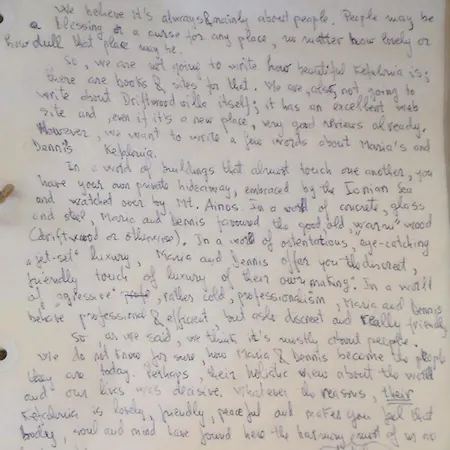 We believe it's always & mainly about people. People may be
a blessing or a curse for any place, no matter how lovely or
how dull that place may be.
So, we are not going to write how beautiful Kefalonia is;
there are books & sites for that. We are, also, not going to
write about Driftwood villa itself; it has an excellent web
site and, even if it's a new place, very good reviews already.
However, we want to write a few words about Maria's and
Dennis Kefalonia.
In a world of buildings that almost touch one another, you
have your own private hideaway, embraced by the Ionian Sea
and watched over by Mt. Ainos. In a world of concrete, glass
and steel, Maria and Dennis favoured the good, old, "warm" wood
(driftwood or otherwise). In a world of ostentatious, eye-catching
"jet-set" luxury, Maria and Dennis offer you the discreet,
friendly touch of luxury of their own making. In a world
of "aggressive", rather cold, professionalism, Maria and Dennis
behave professional & efficient, but also discreet and really friendly.
So as we said, we think it's mostly about people.
We do not know for sure how Maria & Dennis became the people
they are today. Perhaps, their holistic view about the world
and our lives was decisive. Whatever the reasons, their
Kefalonia is lovely, friendly, peaceful and makes you feel that
body, soul and mind have found here the harmony most of us no